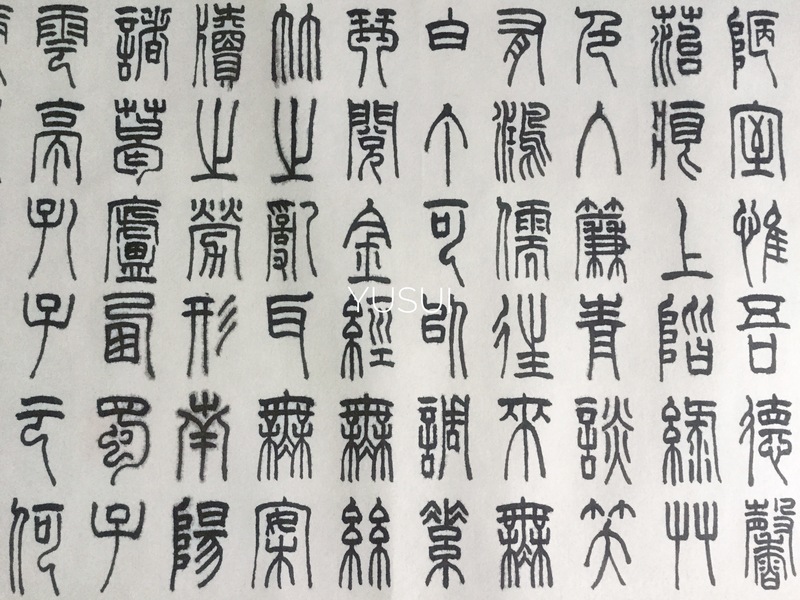 陋室惟吾德馨
菭痕上階綠艸
色入簾青談笑
有鴻儒往來無
白丁可以調素
琴閱金經無絲
竹之亂耳無案
牘之勞形南陽
諸葛廬西蜀子
雲亭孔子云何
YUSUI